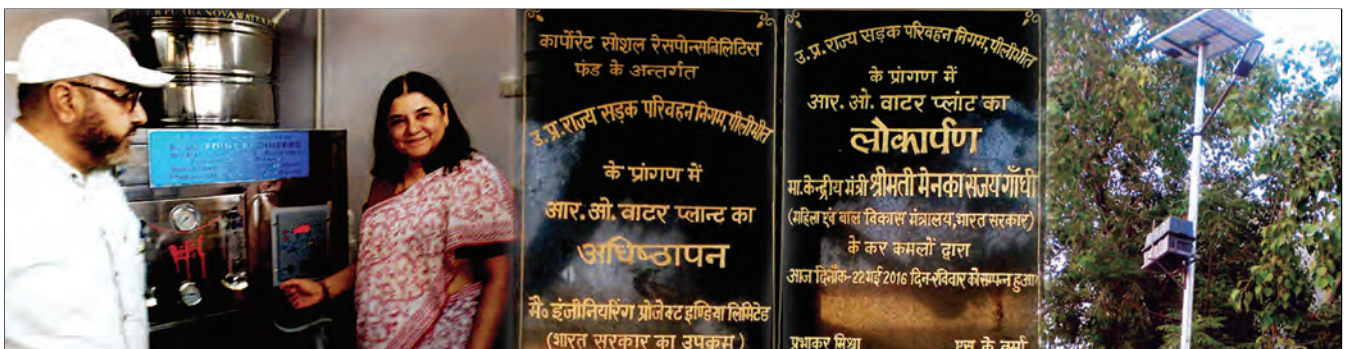 NOVA WATER
कार्पोरेट सोशल रेसपोन्सबिलिटिस
फंड के अन्तर्गत
उ.प्र.राज्य सड़क परिवहन निगम,पीलीभीत
के प्रांगण में
आर.ओ.वाटर प्लान्ट का
अधिष्ठापन
मै० इंजीनियरिंग प्रोजेक्ट इण्डिया लिमिटेड
(भारत सरकार का उपक्रम)
उ.प्र.राज्य सड़क परिवहन निगम,पीलीभीत
के प्रांगण में
आर.ओ. वाटर प्लांट का
लोकार्पण
मा.केन्द्रीय मंत्री श्रीमती मेनका संजय गाँधी
(महिला एवं बाल विकास मंत्रालय,भारत सरकार)
के कर कमलों द्वारा
आज दिनाँक-22 मई 2016 दिन-रविवार को सम्पन्न हुआ
प्रभाकर मिश्रा
एस.के.वर्मा